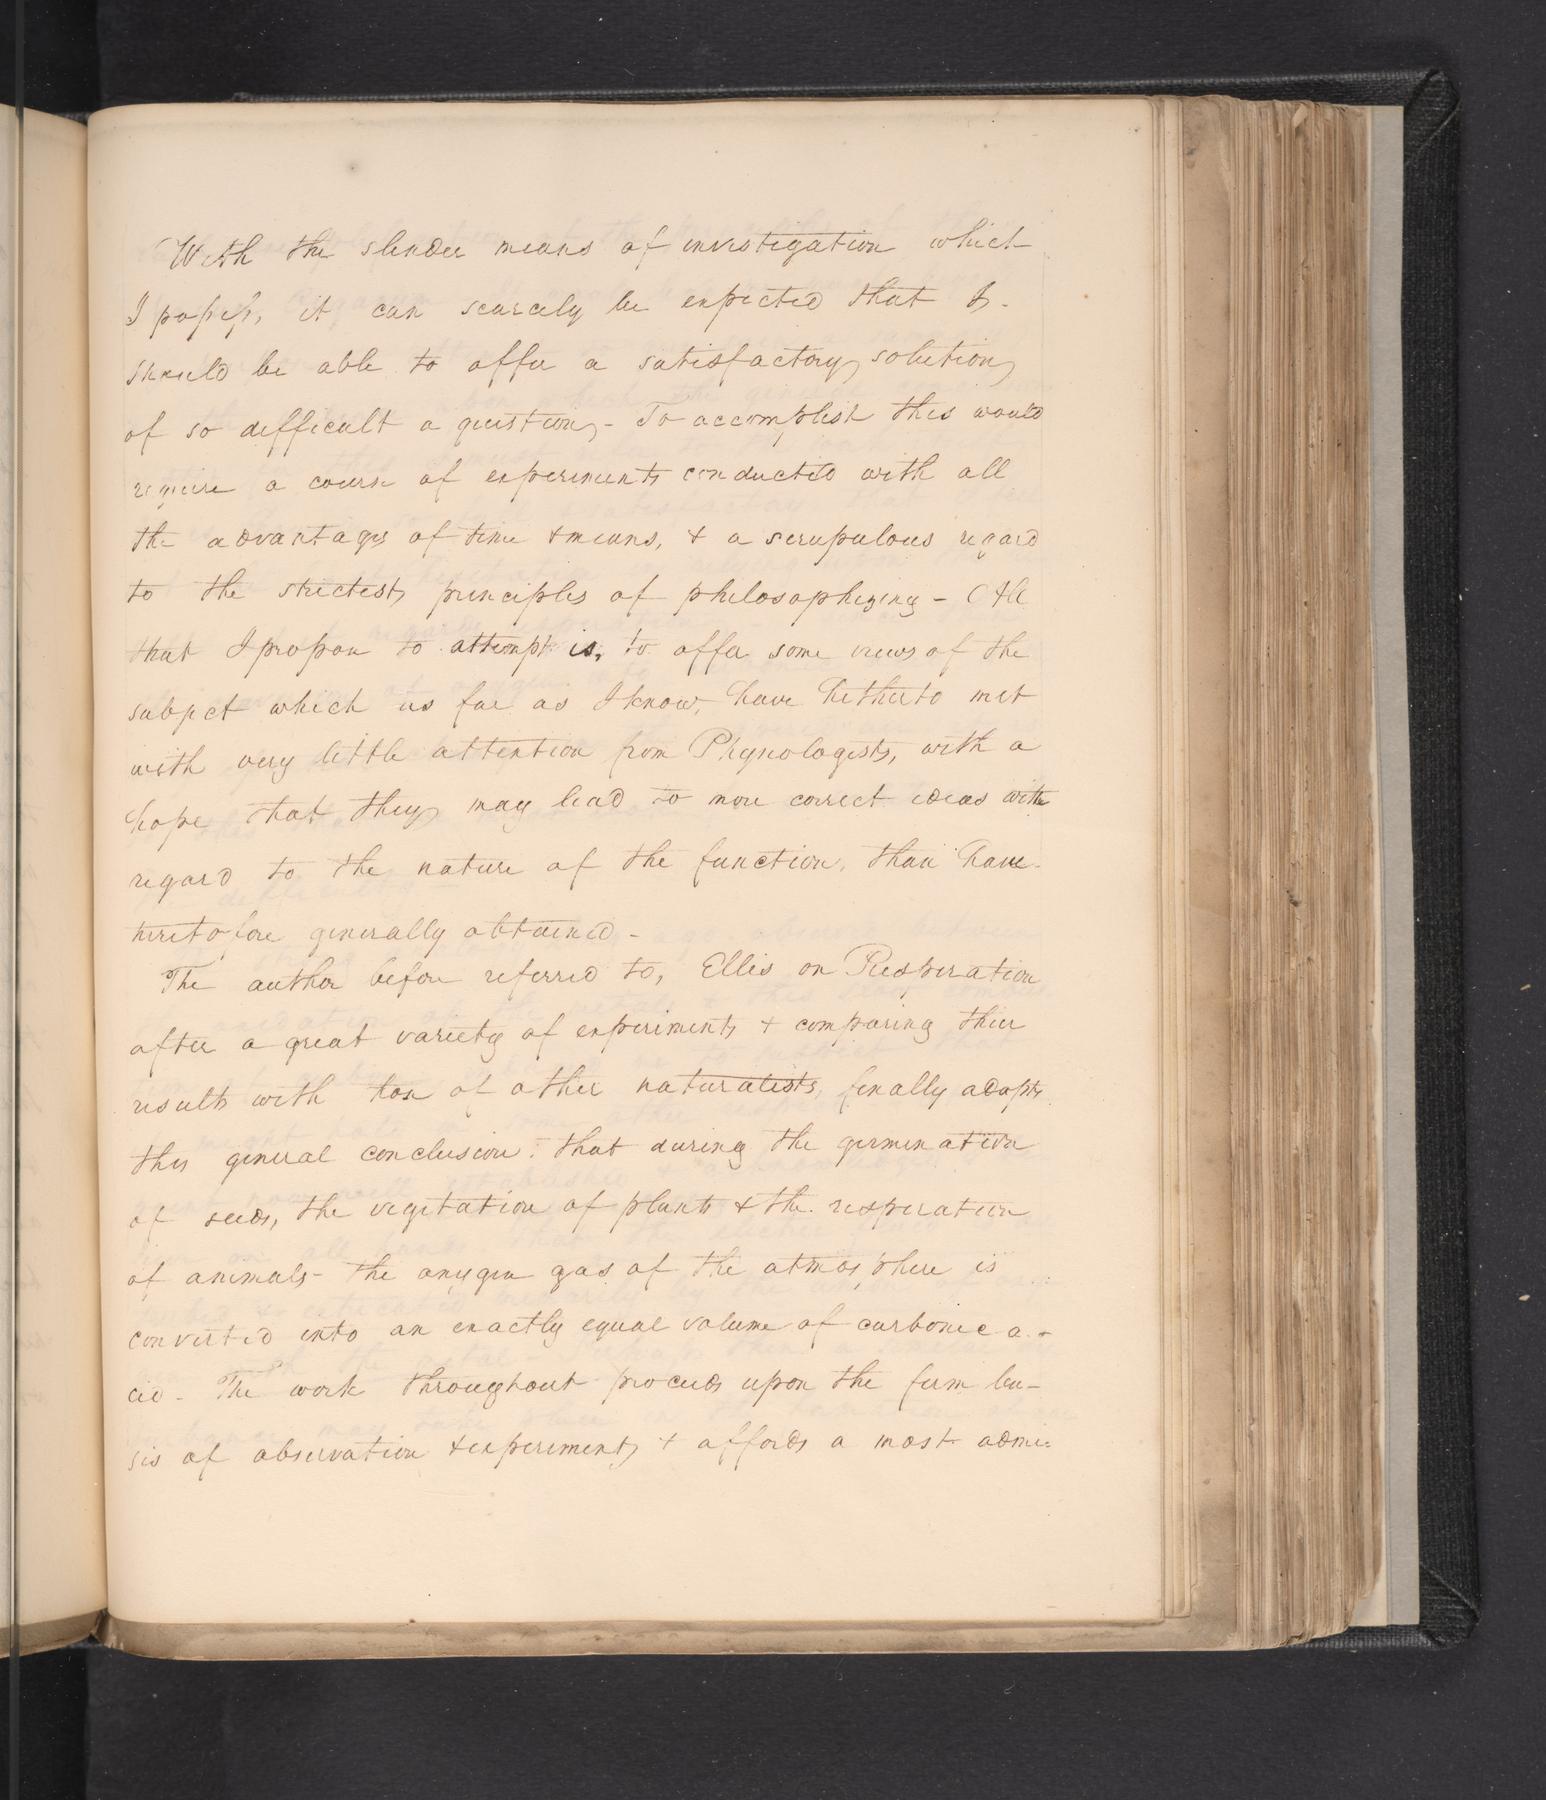 With the slender means of investigation which
I possess, it can scarcely be expected that I
should be able to offer a satisfactory solution
of so difficult a question,- To accomplish this would
require a course of experiments conducted with all
the advantages of time & means, & a scrupulous regard
to the strictest principles of philosophizing - All
that I propose to attempt is, to offer some views of the
subject which as far as I know, have hitherto met
with very little attention from Physiologists, with a
hope that they may lead to more correct ideas with
regard to the nature of the function, than have
heretofore generally obtained -
The author before referred to, Ellis on Respiration
after a great variety of experiments & comparing their
results with those of other naturalists, finally adopts
this general conclusion: that during the germination
of seeds, the vegetation of plants & the respiration
of animals- the oxygen gas of the atmosphere is
converted into an exactly equal volume of carbonic a-
cid - The work throughout proceeds upon the firm ba-
sis of observation & experiment, & affords a most admi-